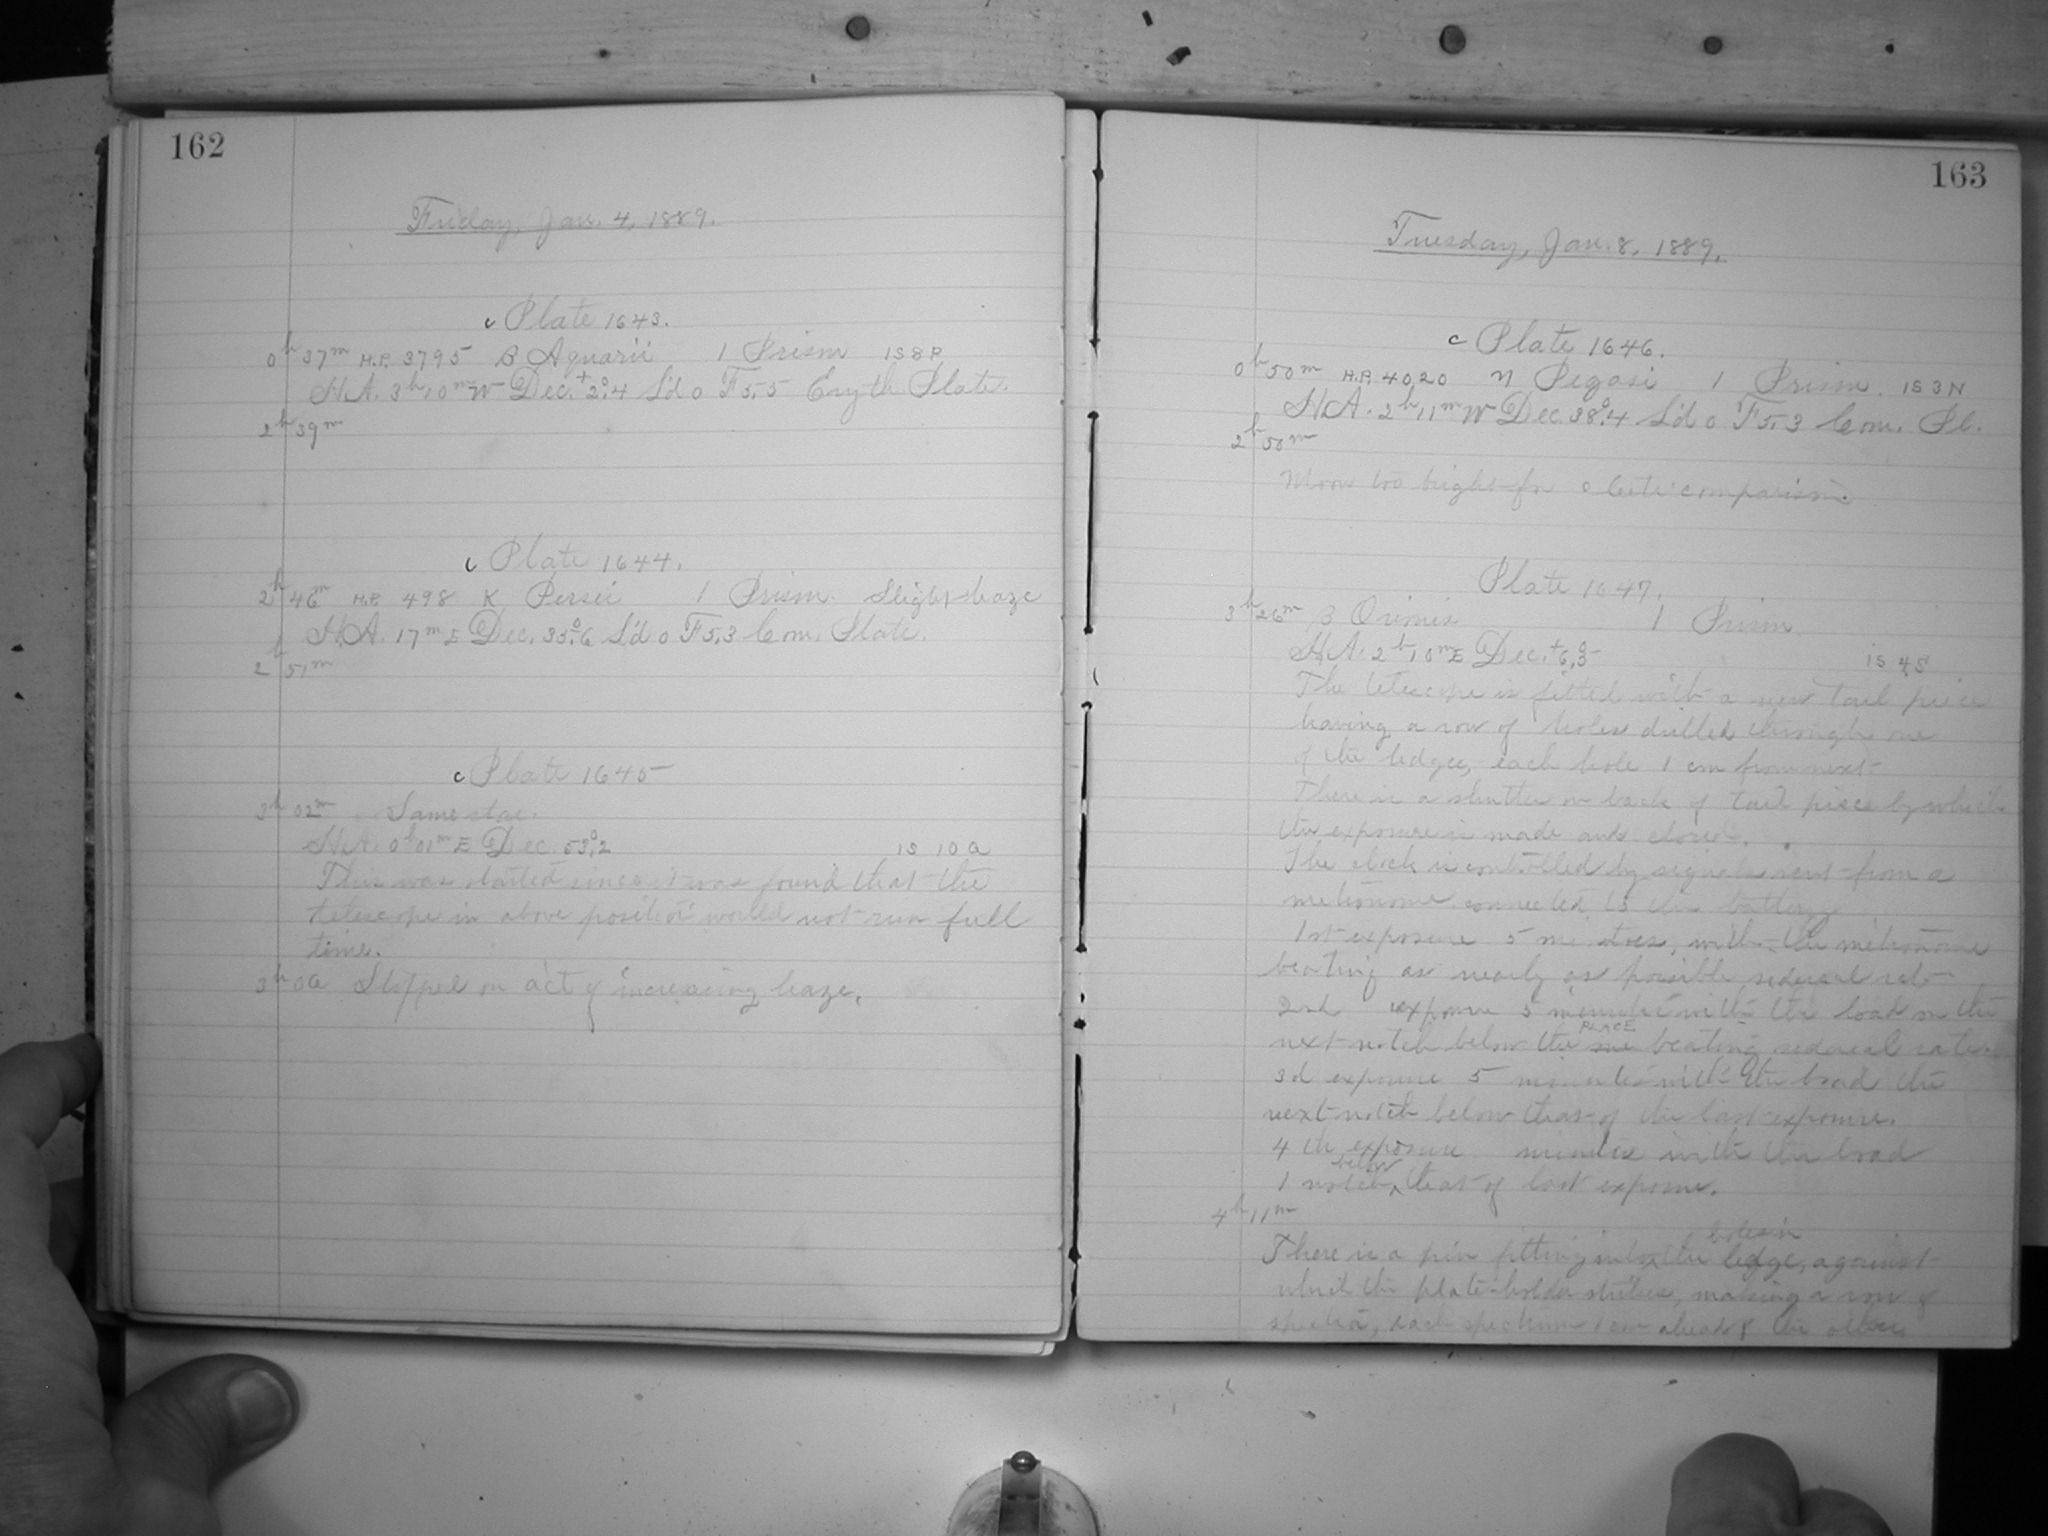 162
Friday, Jan. 4, 1889.
c Plate 1643.
0h 37m H.P. 3795 B Aquarii 1 Prism IS 8 P
H.A. 3h10m W Dec. +2°.4 S'd 0 F5,5 Eryth Plate.
2h 39m
c Plate 1644.
2h 46m H.P. 498 K Persei 1 Prism. Slight haze
H.A. 17m E Dec. 35°.6 S'd 0 F5,3 Com. Plate.
2h 51m
c Plate 1645
3h 02m Same star.
H.A. 0h01m E Dec. 53°.2 IS 10 a
This was started since it was found that the
telescope in above position would not run full
time.
3h Stopped on acct of increasing haze.
163
Tuesday, Jan. 8, 1889.
c Plate 1646.
0h 50m H.P. 4020 η Pegasi 1 Prism. IS 3 N
H.A. 2h11m W Dec. 38°.4 S'd 0 F5,3 Com. Pl.
2h 50m
Moon too bright for comparison.
Plate 1647.
3h 26m β Orionis 1 Prism
H.A. 2h10m E Dec. +6,5° IS 4 S
The telescope is fitted with a new tail piece
having a row of holes drilled through one
of the ledges, each hole 1 cm from next
There is a shutter on back of tail piece by which
the exposure is made and closed.
The clock is controlled by signals sent from a
metronome connected to the battery
1st exposure 5 minutes, with the metronome
beating as nearly as possible sidereal rate
2nd exposure 5 minutes with the load on the
next notch below the one PLACE beating sidereal rate.
3d exposure 5 minutes with the load the
next notch below that of the last exposure.
4th exposure minutes with the load
1 notch below that of last exposure.
4h 11m
There is a pin fitting into the holes in ledge, against
which the plate-holder strikes, making a row of
spectra, each spectrum 1 cm ahead of the other